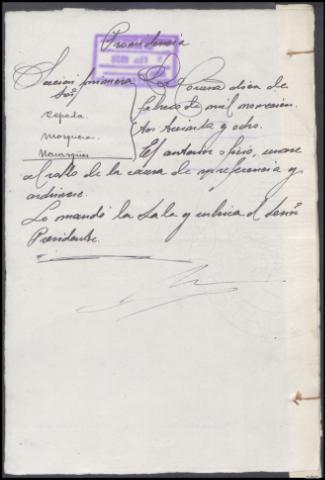 Providencia
Sección primera La Coruña diez de
Sres. febrero de mil novecien-
Cepeda. tos treinta y ocho.
Mosquera El anterior oficio, únase
al rollo de la causa de su referencia y
archívese.
Lo mandó la Sala y rubrica el Señor
Presidente.